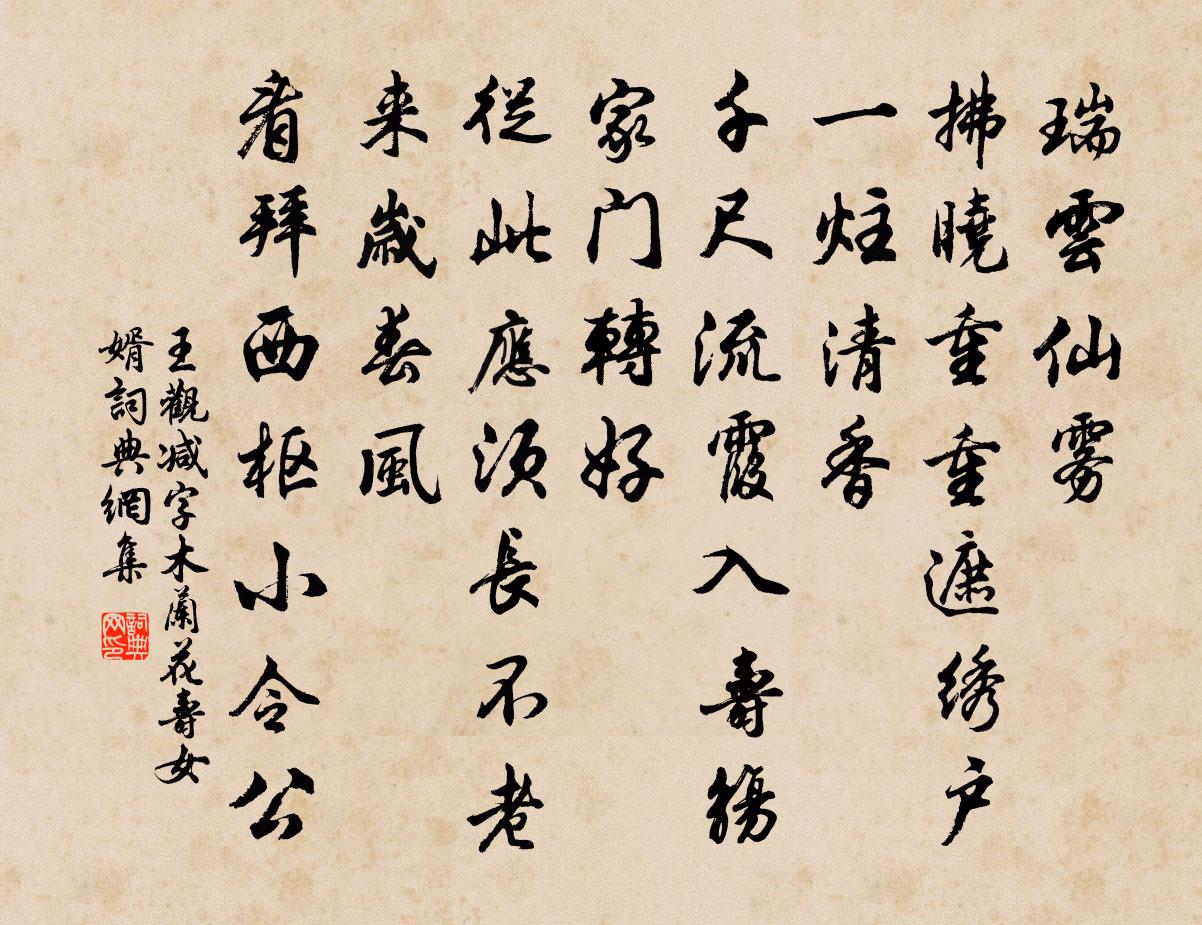 瑞雲仙雾
拂曉重重遮绣户
一炷清香
千尺流霞入壽觴
家门轉好
從此應須長不老
来歲春風
看拜西枢小令公
王觀减字木蘭花壽女
婿詞典網集
詞典网印